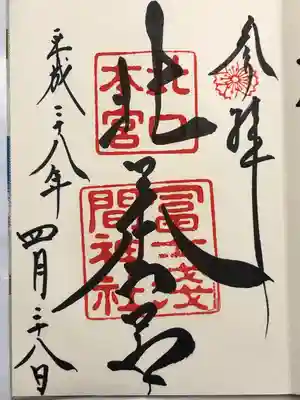 奉拝
北口
本宮
冨士浅
間神社
平成二十八年四月二十八日